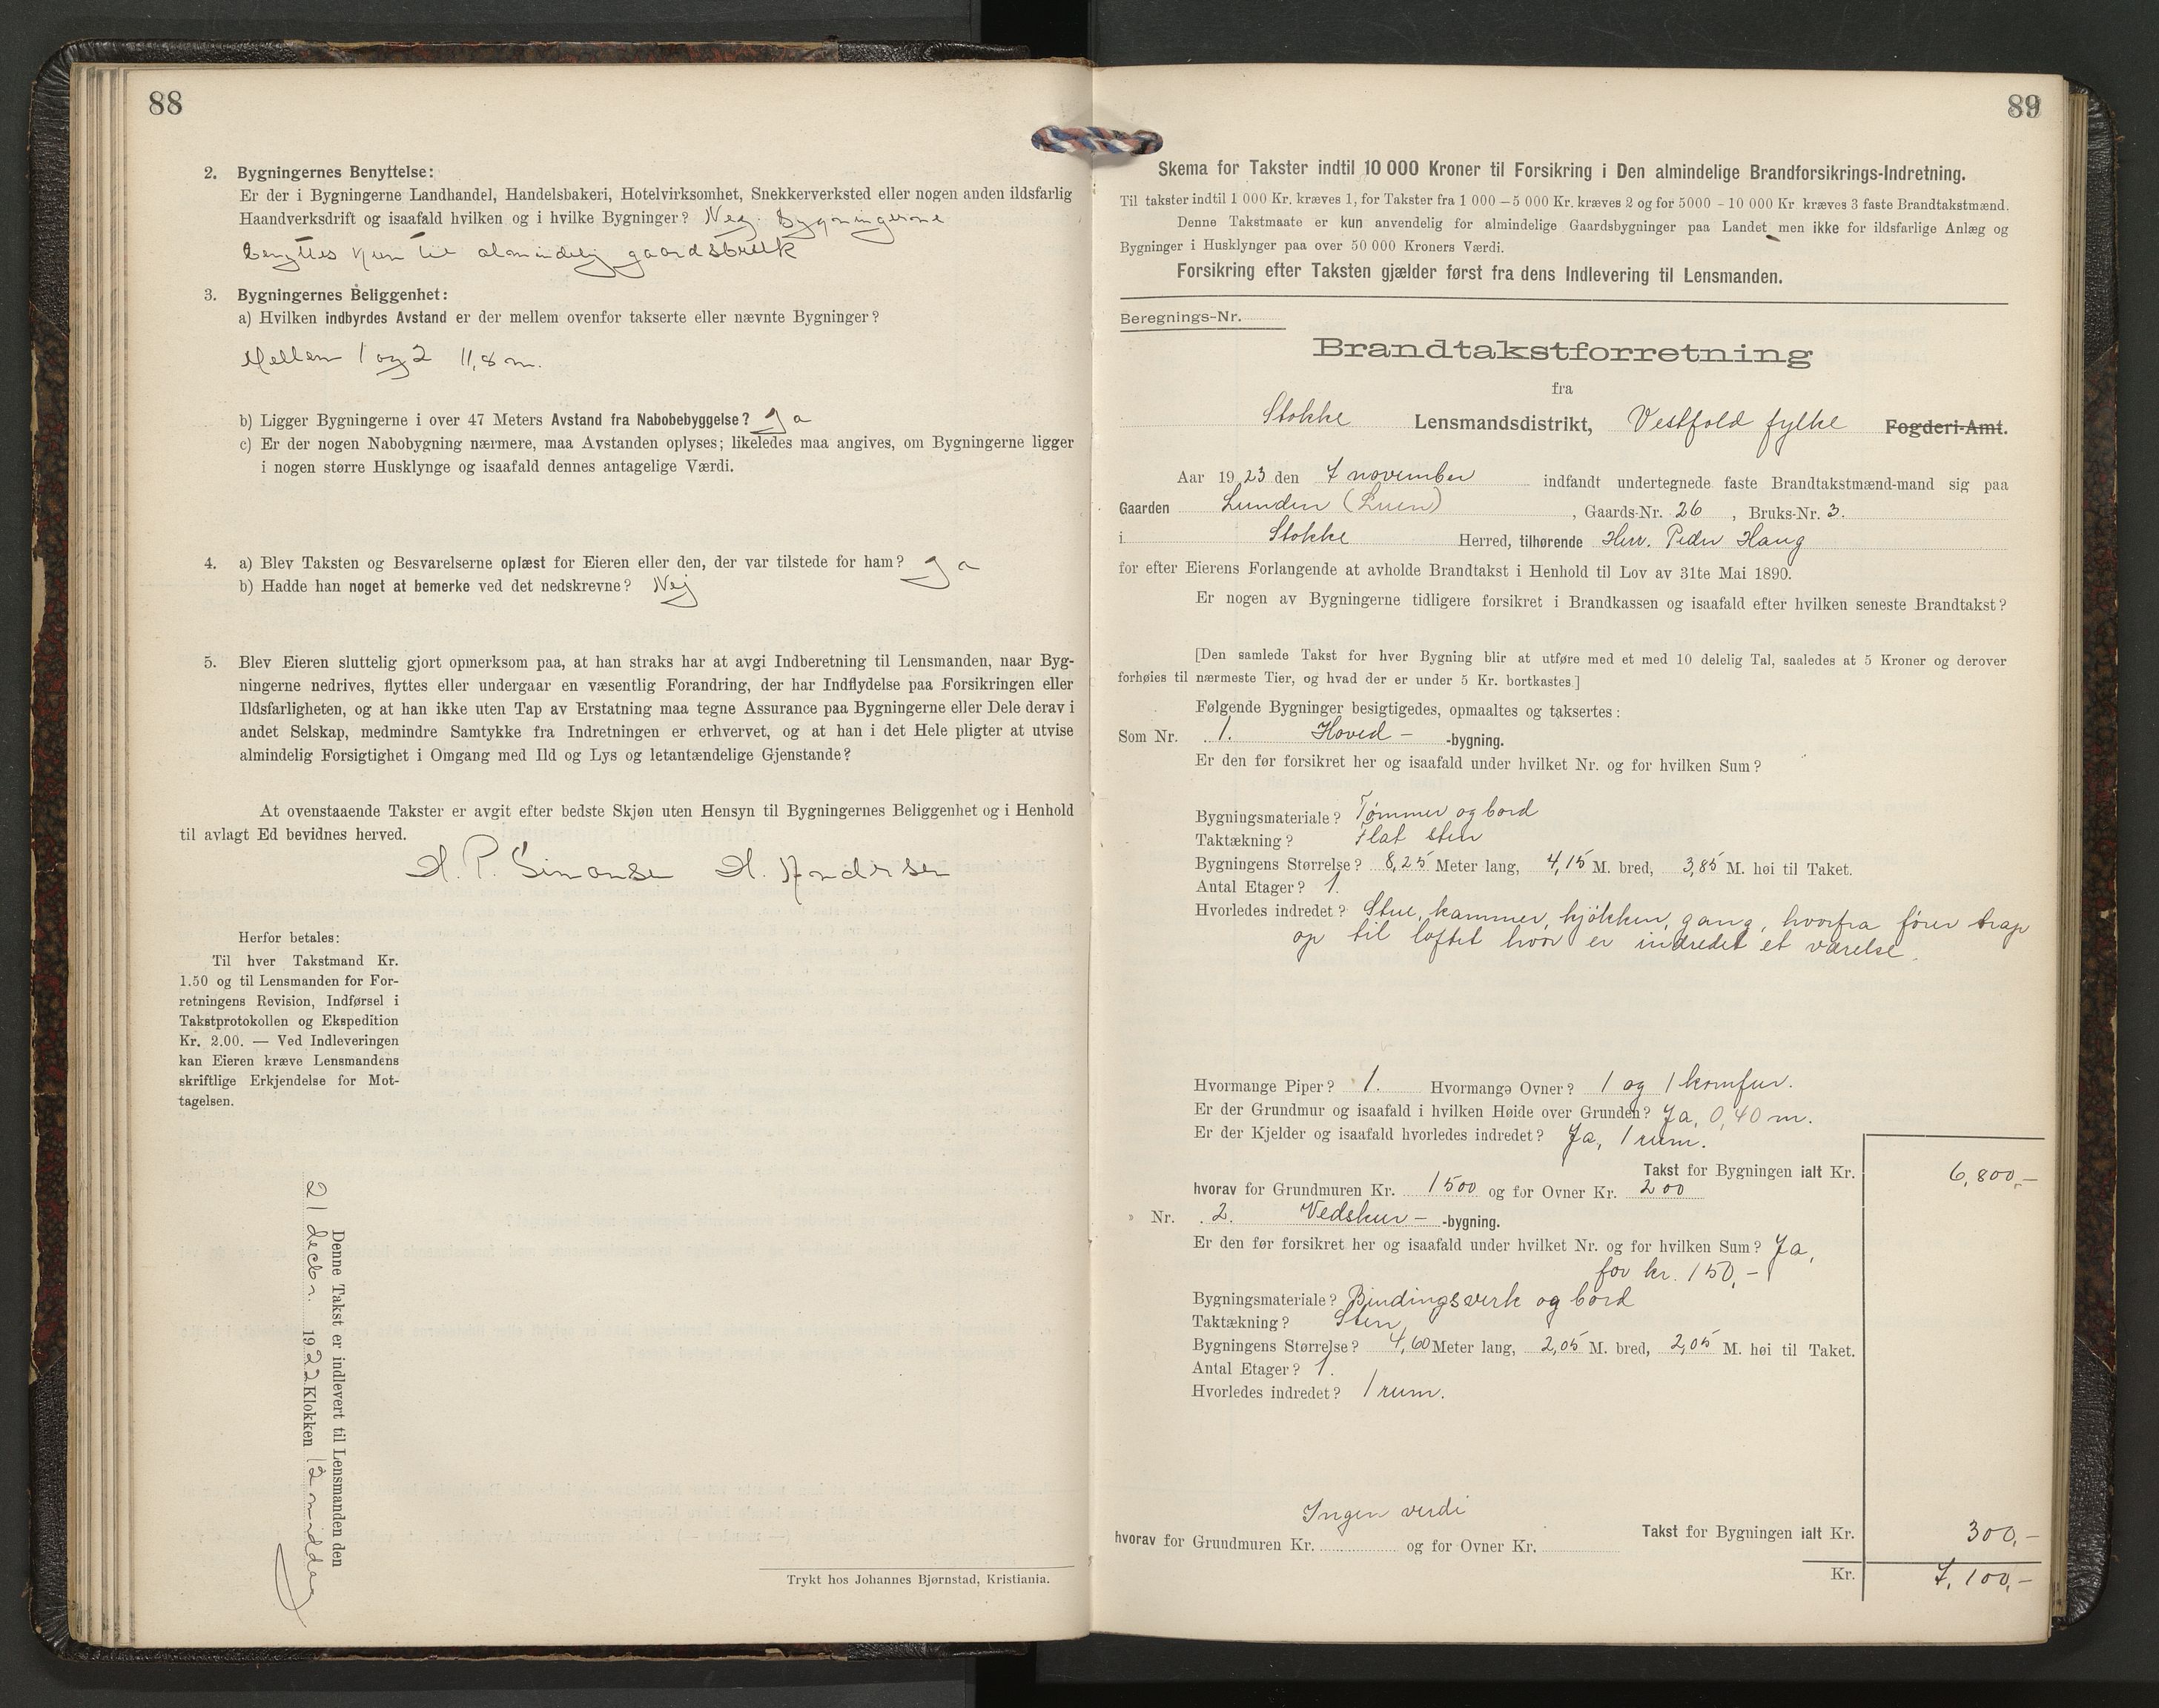 88
2. Bygningernes Benyttelse:
Er der i Bygningerne Landhandel, Handelsbakeri, Hotelvirksomhet, Snekkerverksted eller nogen anden ildsfarlig
Haandverksdrift og isaafald hvilken og i hvilke Bygninger? Nej. Bygningerne
benyttes kun til almindelig gaardsbruk
3. Bygningernes Beliggenhet:
a) Hvilken indbyrdes Avstand er der mellem ovenfor takserte eller nævnte Bygninger?
Mellem 1 og 2 11,8 m.
b) Ligger Bygningerne i over 47 Meters Avstand fra Nabobebyggelse? Ja
c) Er der nogen Nabobygning nærmere, maa Avstanden oplyses; likeledes maa angives, om Bygningerne ligger
i nogen større Husklynge og isaafald dennes antagelige Værdi.
4. a) Blev Taksten og Besvarelserne oplæst for Eieren eller den, der var tilstede for ham? Ja
b) Hadde han noget at bemerke ved det nedskrevne? Nej
5. Blev Eieren sluttelig gjort opmerksom paa, at han straks har at avgi Indberetning til Lensmanden, naar Byg-
ningerne nedrives, flyttes eller undergaar en væsentlig Forandring, der har Indflydelse paa Forsikringen eller
Ildsfarligheten, og at han ikke uten Tap av Erstatning maa tegne Assurance paa Bygningerne eller Dele derav i
andet Selskap, medmindre Samtykke fra Indretningen er erhvervet, og at han i det Hele pligter at utvise
almindelig Forsigtighet i Omgang med Ild og Lys og letantændelige Gjenstande?
At ovenstaaende Takster er avgit efter bedste Skjøn uten Hensyn til Bygningernes Beliggenhet og i Henhold
til avlagt Ed bevidnes herved.
H. P. Simonsen H. Andersen
Herfor betales:
Til hver Takstmand Kr.
1.50 og til Lensmanden for For-
retningens Revision, Indførsel i
Takstprotokollen og Ekspedition
Kr. 2.00. — Ved Indleveringen
kan Eieren kræve Lensmandens
skriftlige Erkjendelse for Mot-
tagelsen.
Denne Takst er indlevert til Lensmanden den
21 decbr. 1922 Klokken 12 middag
Trykt hos Johannes Bjørnstad, Kristiania.
89
Skema for Takster indtil 10 000 Kroner til Forsikring i Den almindelige Brandforsikrings-Indretning.
Til takster indtil 1 000 Kr. kræves 1, for Takster fra 1 000 – 5 000 Kr. kræves 2 og for 5000 – 10 000 Kr kræves 3 faste Brandtakstmænd.
Denne Takstmaate er kun anvendelig for almindelige Gaardsbygninger paa Landet men ikke for ildsfarlige Anlæg og
Bygninger i Husklynger paa over 50 000 Kroners Værdi.
Forsikring efter Taksten gjælder først fra dens Indlevering til Lensmanden.
Beregnings-Nr.
Brandtakstforretning
fra
Stokke Lensmandsdistrikt, Vestfold fylke Fogderi-Amt.
Aar 1923 den 7 november indfandt undertegnede faste Brandtakstmænd-mand sig paa
Gaarden Lunden (Luen), Gaards-Nr. 26, Bruks-Nr. 3.
i Stokke Herred, tilhørende Herr. Peder Haug
for efter Eierens Forlangende at avholde Brandtakst i Henhold til Lov av 31te Mai 1890.
Er nogen av Bygningerne tidligere forsikret i Brandkassen og isaafald efter hvilken seneste Brandtakst?
[Den samlede Takst for hver Bygning blir at utføre med et med 10 delelig Tal, saaledes at 5 Kroner og derover
forhøies til nærmeste Tier, og hvad der er under 5 Kr. bortkastes]
Følgende Bygninger besigtigedes, opmaaltes og taksertes:
Som Nr. 1. Hoved- -bygning.
Er den før forsikret her og isaafald under hvilket Nr. og for hvilken Sum?
Bygningsmateriale? Tømmer og bord
Taktækning? Flat sten
Bygningens Størrelse? 8,25 Meter lang, 4,15 M. bred, 3,85 M. høi til Taket.
Antal Etager? 1.
Hvorledes indredet? Stue, kammer, kjøkken, gang, hvorfra fører trap
op til loftet hvor er indredet et værelse.
Hvormange Piper? 1. Hvormange Ovner? 1 og 1 komfur.
Er der Grundmur og isaafald i hvilken Høide over Grunden? Ja, 0,40 m.
Er der Kjelder og isaafald hvorledes indredet? Ja, 1 rum.
Takst for Bygningen ialt Kr. 6,800,-
hvorav for Grundmuren Kr. 1500 og for Ovner Kr. 200
» Nr. 2. Vedskur- -bygning.
Er den før forsikret her og isaafald under hvilket Nr. og for hvilken Sum? Ja,
for kr. 150,-
Bygningsmateriale? Bindingsverk og bord
Taktækning? Sten
Bygningens Størrelse? 4,60 Meter lang, 2,05 M. bred, 2,05 M. høi til Taket.
Antal Etager? 1.
Hvorledes indredet? 1 rum.
Ingen verdi
hvorav for Grundmuren Kr. og for Ovner Kr. Takst for Bygningen ialt Kr. 300,-
Kr. 7,100,-